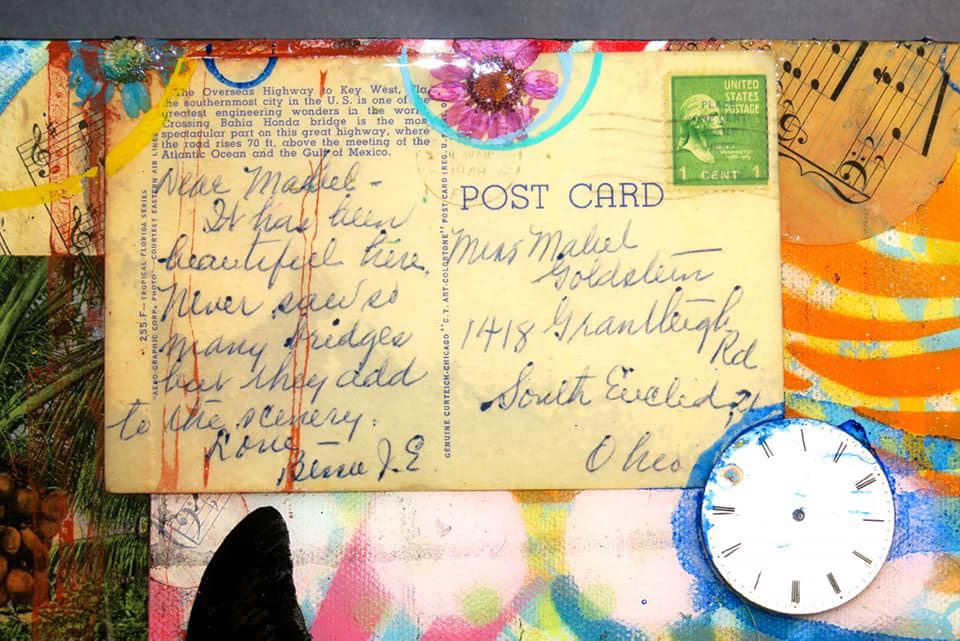 The Overseas Highway to Key West, Fla.
the southernmost city in the U. S. is one of the
greatest engineering wonders in the world.
Crossing Bahia Honda bridge is the most
spectacular part on this great highway, where
the road rises 70 ft. above the meeting of the
Atlantic Ocean and the Gulf of Mexico.
Dear Mabel -
It has been
beautiful here.
Never saw so
many bridges
but they add
to the scenery.
Love -
Bessie J. E
255.F—TROPICAL FLORIDA SERIES
"AERO-GRAPHIC CORP. PHOTO—COURTESY EASTERN AIR LINES
GENUINE CURTEICH-CHICAGO "C.T. ART-COLORTONE" POST CARD (REG. U.
POST CARD
UNITED
STATES
POSTAGE
WASHINGTON
1 CENT 1
Miss Mabel
Goldstein
1418 Grantleigh
Rd
South Euclid 21
Ohio